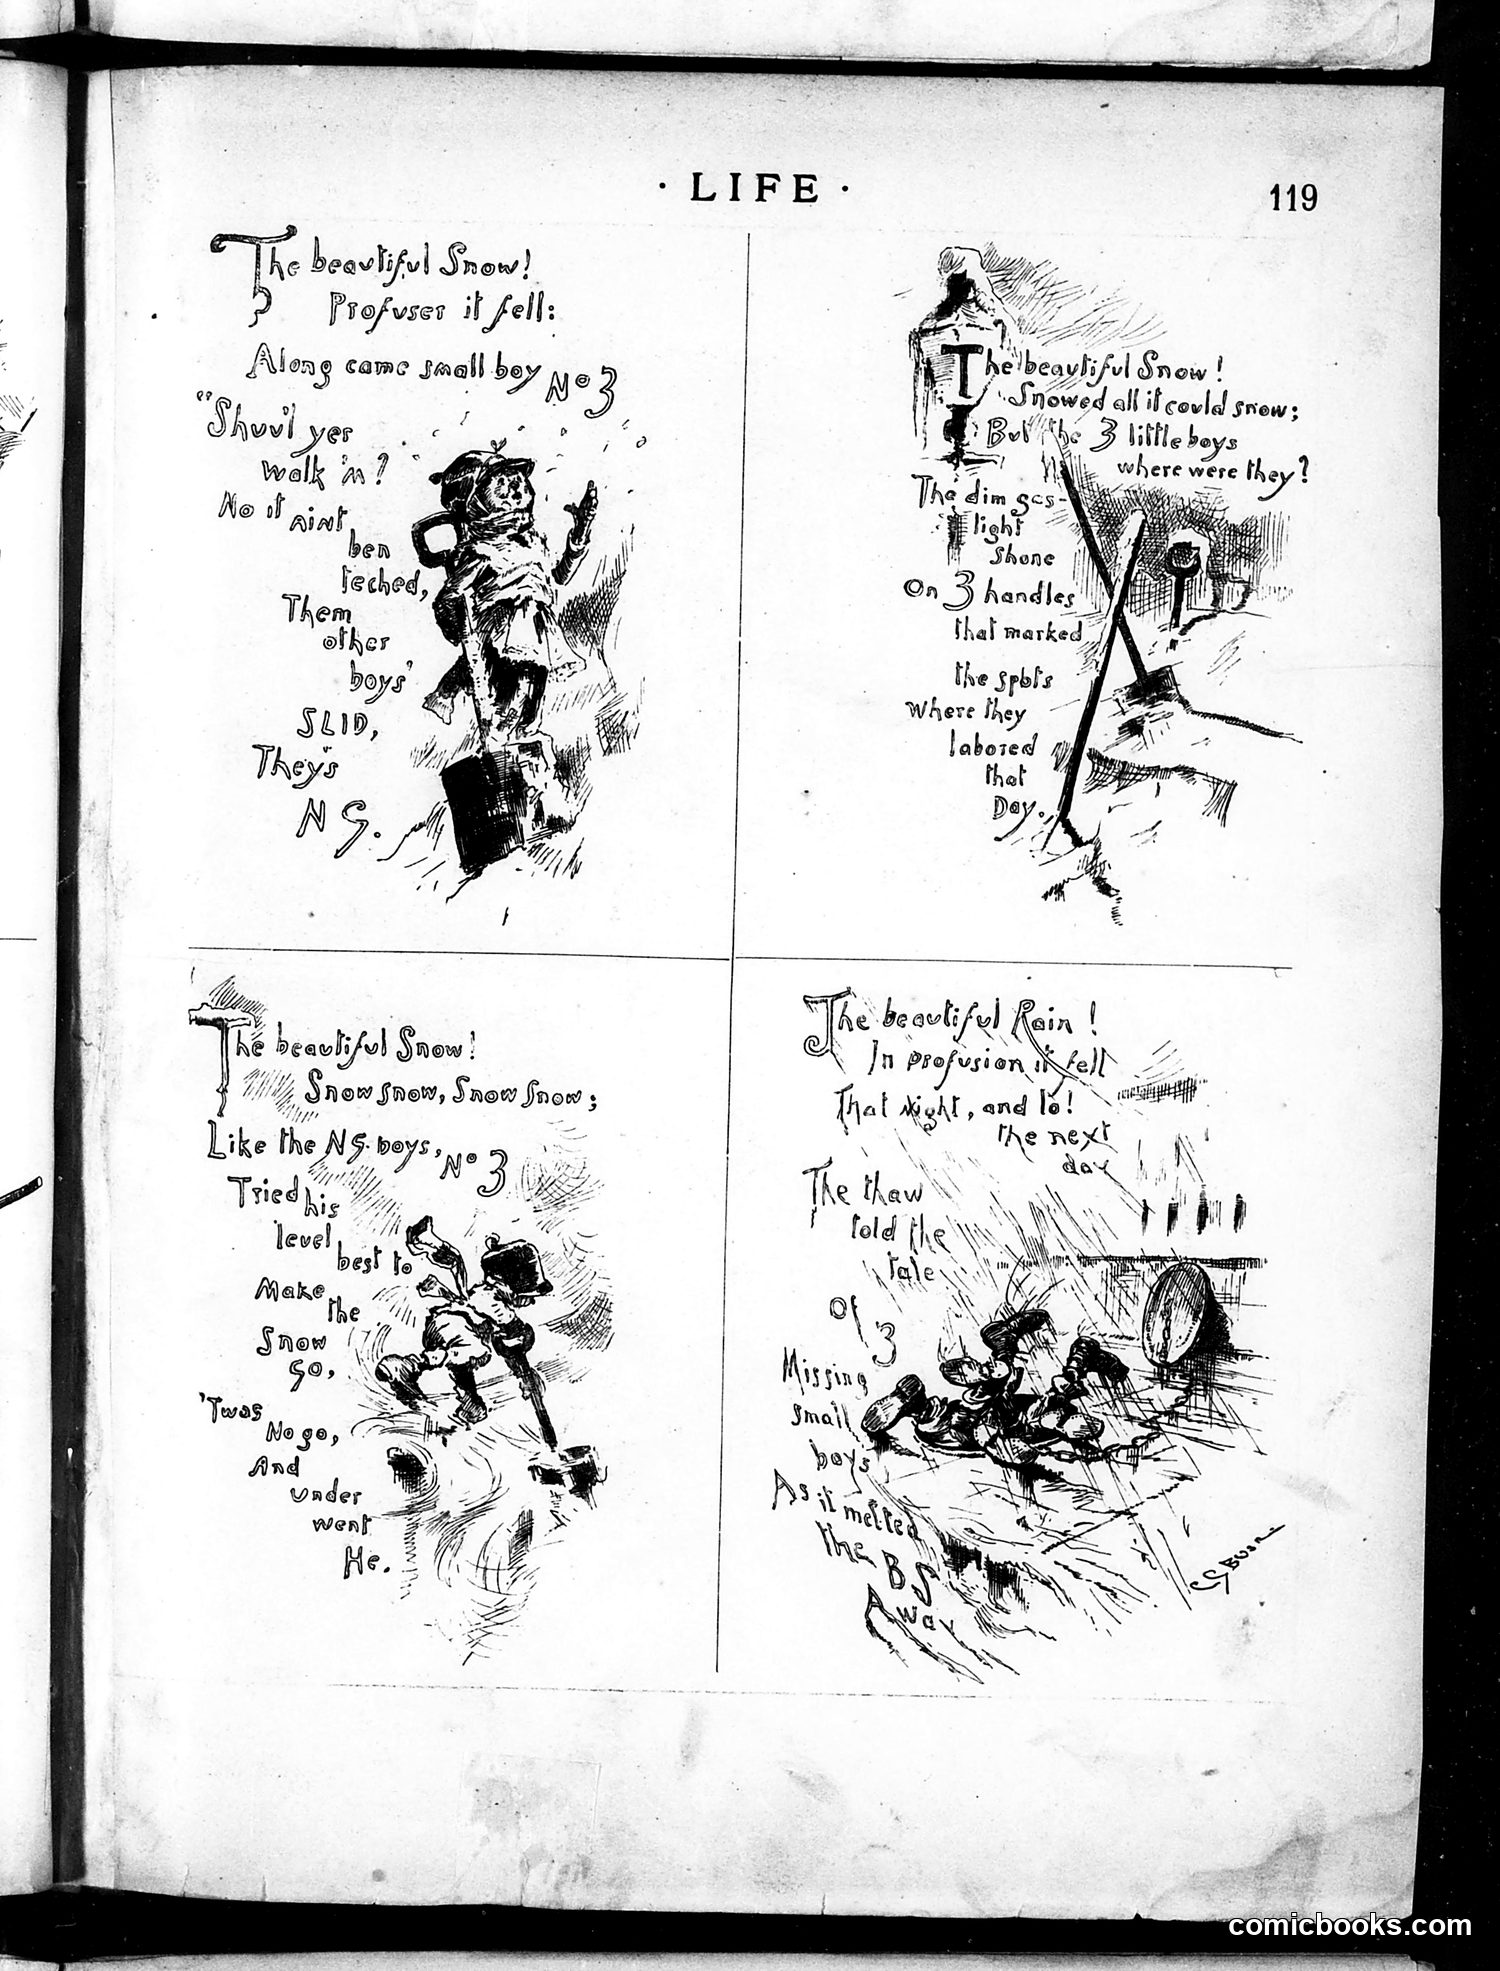 · LIFE ·
119
The beautiful Snow!
Profuser it fell:
Along came small boy No 3
"Shuv'l yer
walk 'm?
No it aint
ben
teched,
Them
other
boys'
SLID,
They's"
N G.
The beautiful Snow!
Snow snow, Snow snow;
Like the N G. boys, No 3
Tried his
level
best to
Make
the
Snow
go,
'Twas
No go,
And
under
went
He.
The beautiful Snow!
Snowed all it could snow;
But the 3 little boys
where were they?
The dim gas-
light
shone
On 3 handles
that marked
the spots
where they
labored
that
Day.
The beautiful Rain!
In profusion it fell
That night, and lo!
the next
day
The thaw
told the
tale
Of
3
Missing
small
boys
As it melted
the B S
Away
comicbooks.com